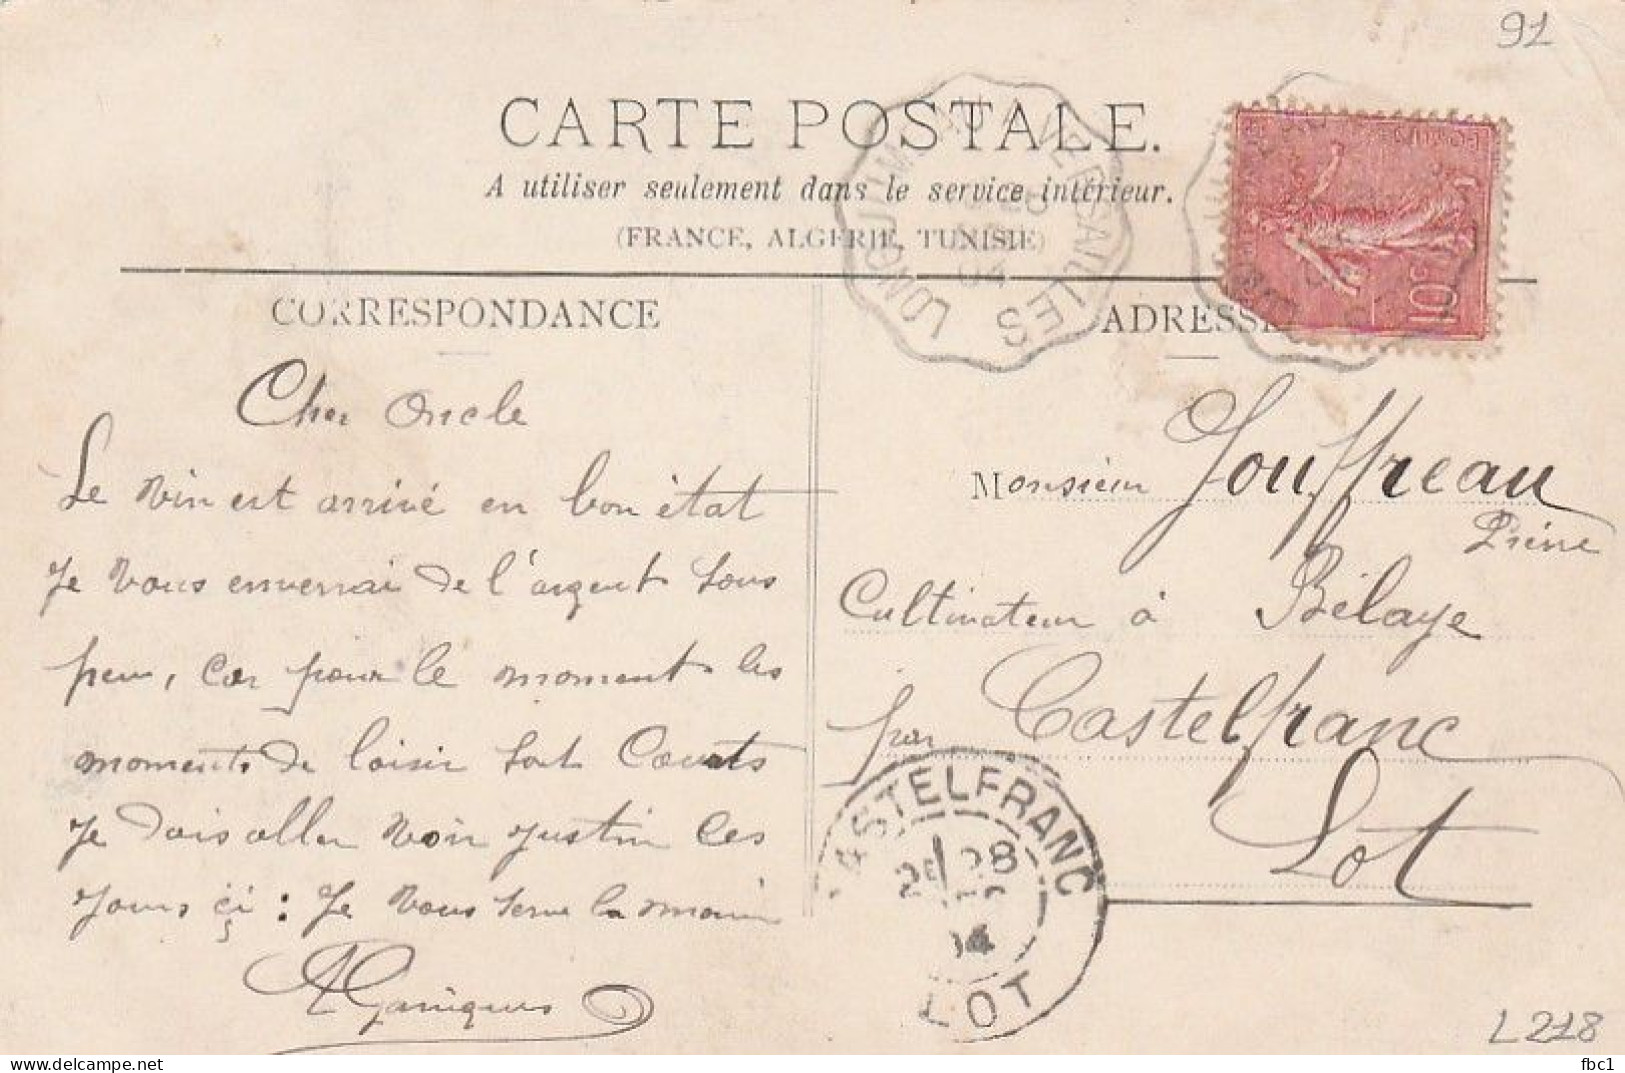 91
CARTE POSTALE.
A utiliser seulement dans le service intérieur.
(FRANCE, ALGÉRIE, TUNISIE)
LONGJUMEAU A VERSAILLES
CORRESPONDANCE
Cher Oncle
Le vin est arrivé en bon état
Je vous enverrai de l'argent sous
peu, car pour le moment les
moments de loisir sont Courts
Je dois aller voir Justin ces
jours çi : Je vous serre la main
AGarrigues
ADRESSE
POSTES
10c
Monsieur Jouffreau
Pierre
Cultivateur à Bélaye
par Castelfranc
Lot
CASTELFRANC
28
04
LOT
L 218
fbc1